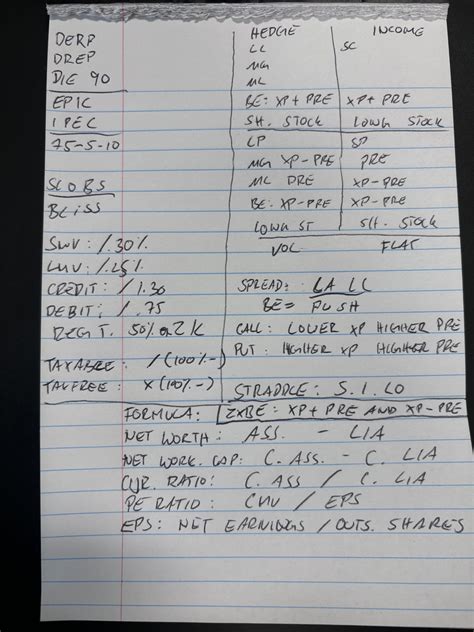 DERP
DREP
DIE 90
EPIC
IPEC
75-5-10
SLOBS
BLiSS
SMV: /.30%
LMV: /.25%
CREDIT: /1.30
DEBIT: /.75
REG T. 50% or 2K
TAXABLE: /(100%-)
TAXFREE: x(100%-)
HEDGE INCOME
LL SC
MG
ML
BE: XP+PRE XP+PRE
SH. STOCK LONG STOCK
LP SP
MG XP-PRE PRE
ML PRE XP-PRE
BE: XP-PRE XP-PRE
LONG ST SH. STOCK
VOL FLAT
SPREAD: LALC
BE= PUSH
CALL: LOWER XP HIGHER PRE
PUT: HIGHER XP HIGHER PRE
STRADDLE: S.I.LO
FORMULA: 2XBE: XP+PRE AND XP-PRE
NET WORTH: ASS. - LIA
NET WORK. CAP: C. ASS - C. LIA
CUR. RATIO: C. ASS / C. LIA
PE RATIO: CMV / EPS
EPS: NET EARNINGS / OUTS. SHARES